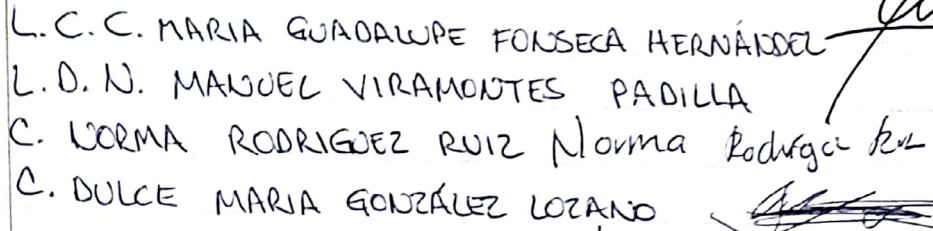 L.C.C. MARIA GUADALUPE FONSECA HERNÁNDEZ
L.D.N. MANUEL VIRAMONTES PADILLA
C. NORMA RODRIGUEZ RUIZ Norma Rodrigez Ruz
C. DULCE MARIA GONZÁLEZ LOZANO